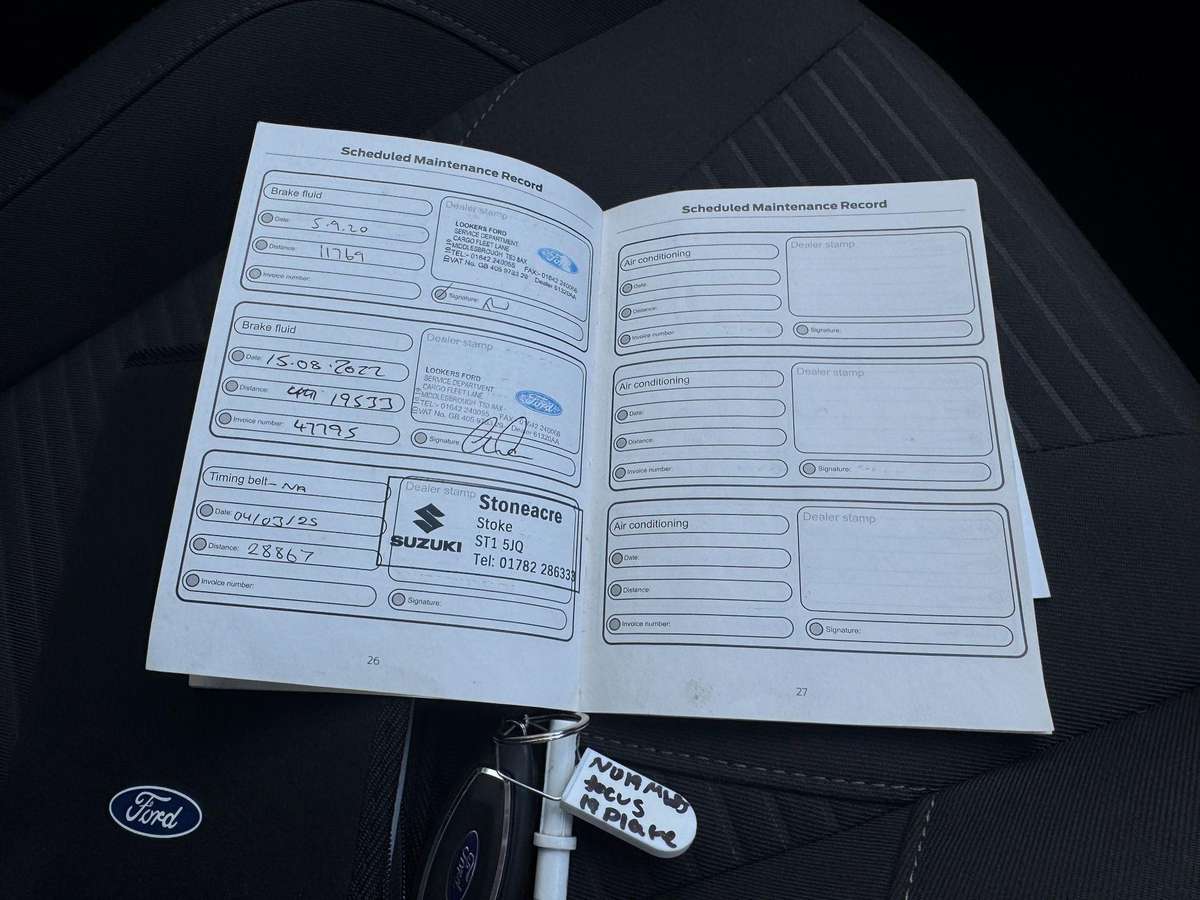 Scheduled Maintenance Record
Brake fluid
Date: 5.9.20
Distance: 11769
Invoice number:
Dealer stamp
LOOKERS FORD
SERVICE DEPARTMENT
CARGO FLEET LANE
MIDDLESBROUGH TS3 8AX
TEL:- 01642 240055 FAX:- 01642 240066
VAT No. GB 405 9783 29 Dealer 61320AA
Ford
Signature:
Brake fluid
Date: 15.08.2022
Distance: 19533
Invoice number: 47795
Dealer stamp
LOOKERS FORD
SERVICE DEPARTMENT
CARGO FLEET LANE
MIDDLESBROUGH TS3 8AX
TEL:- 01642 240055 FAX:- 01642 240066
VAT No. GB 405 9783 29 Dealer 61320AA
Ford
Signature:
Timing belt - NA
Date: 04/03/25
Distance: 28867
Invoice number:
Dealer stamp
SUZUKI
Stoneacre
Stoke
ST1 5JQ
Tel: 01782 286338
Signature:
26
Scheduled Maintenance Record
Air conditioning
Date:
Distance:
Invoice number:
Dealer stamp
Signature:
Air conditioning
Date:
Distance:
Invoice number:
Dealer stamp
Signature:
Air conditioning
Date:
Distance:
Invoice number:
Dealer stamp
Signature:
27
Ford
Ford
focus
19 Plate